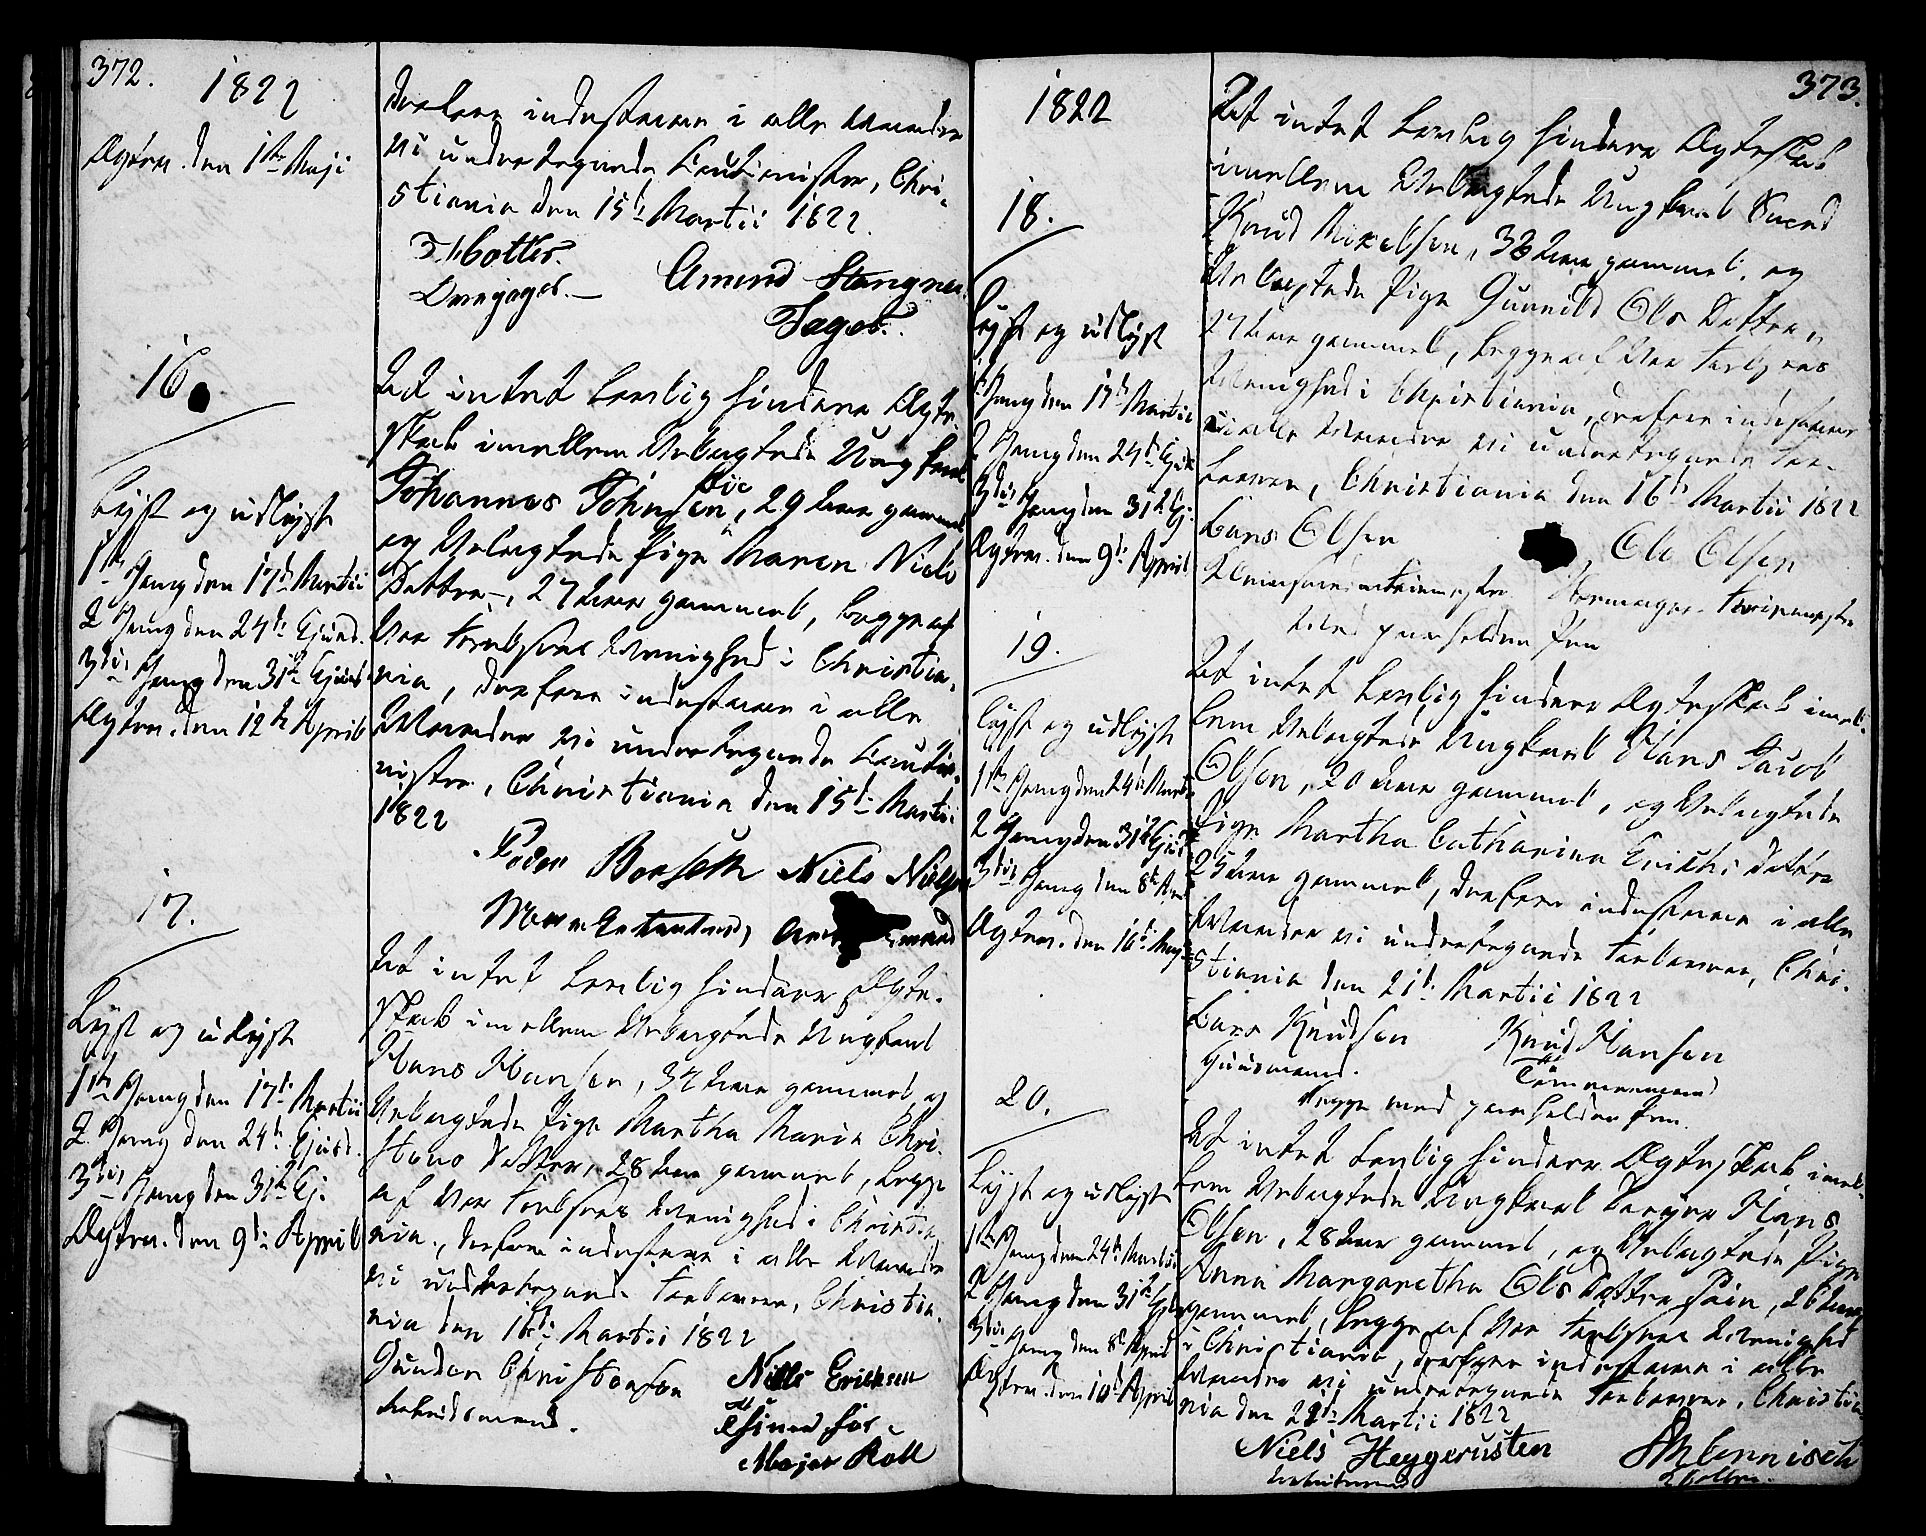 372.
1822
Ægtev. den 1ste Maji
derfore indestaaer i alle Maader
vi undertegnede Cautionister, Chri-
stiania den 15de Martii 1822.
Amund Stangnes
16.
At intet lovlig hindrer Ægte-
skab imellem Velagtede Ungkarl
Johannes Johnsen, 29 Aar gammel
og Velagtede Pige Maren Niels
Datter, 27 Aar gammel, begge af
Vor Frelsers Menighed i Christia-
nia, derfore indestaaer i alle
Maader vi undertegnede Cautio-
nister, Christiania den 15de Martii
1822
Lyst og udlyst
1ste Gang den 17de Martii
2 Gang den 24de Ejusd.
3die Gang den 31te Ejusd.
Ægtev. den 12te April
Peder Niels Nielsen
17.
At intet lovlig hindrer Ægte-
skab imellem Velagtede Ungkarl
Hans Hansen, 37 Aar gammel og
Velagtede Pige Martha Maria Chri-
stens Datter, 28 Aar gammel, begge
af Vor Frelsers Menighed i Christia-
nia, derfore indestaaer i alle Maader
vi undertegnede Forlovere, Christia-
nia den 16de Martii 1822
Lyst og udlyst
1ste Gang den 17de Martii
2 Gang den 24de Ejusd.
3die Gang den 31te Ej.
Ægtev. den 9de April
Gunder Christensen Niels Ericksen
Arbeidsmand.
Majer Roll
373.
1822
18.
At intet lovlig hindrer Ægteskab
imellem Velagtede Ungkarl Svend
Knud Mikelsen, 38 Aar gammel, og
Velagtede Pige Gunnild Ols Datter,
27 Aar gammel, begge af Vor Frelsers
Menighed i Christiania, derfore indestaaer
i alle Maader vi undertegnede For-
lovere, Christiania den 16de Martii 1822
Lyst og udlyst
1 Gang den 17de Martii
2 Gang den 24de Ejusd.
3die Gang den 31te Ej.
Ægtev. den 9de April
Lars Olsen Ole Olsen
med paaholden Pen
19.
At intet lovlig hindrer Ægteskab imel-
lem Velagtede Ungkarl Hans Jacob
Olsen, 20 Aar gammel, og Velagtede
Pige Martha Catharina Erichs Datter
25 Aar gammel, derfore indestaaer i alle
Maader vi undertegnede Forlovere, Chri-
stiania den 21de Martii 1822
Lyst og udlyst
1ste Gang den 24de Martii
2 Gang den 31te Ejusd.
3die Gang den 8de April
Ægtev. den 16de Maji
Lars Knudsen Knud Hansen
Huusmand. Tømmermand
begge med paaholden Pen.
20.
At intet lovlig hindrer Ægteskab imel-
lem Velagtede Ungkarl Hans
Olsen, 28 Aar gammel, og Velagtede Pige
Anna Margaretha Ols Datter 26 Aar
gammel, begge af Vor Frelsers Menighed
i Christiania, derfore indestaaer i alle
Maader vi undertegnede Forlovere, Christia-
nia den 22de Martii 1822
Lyst og udlyst
1ste Gang den 24de Martii
2 Gang den 31te Ej.
3die Gang den 8de April
Ægtev. den 10de April
Niels Heggerusten